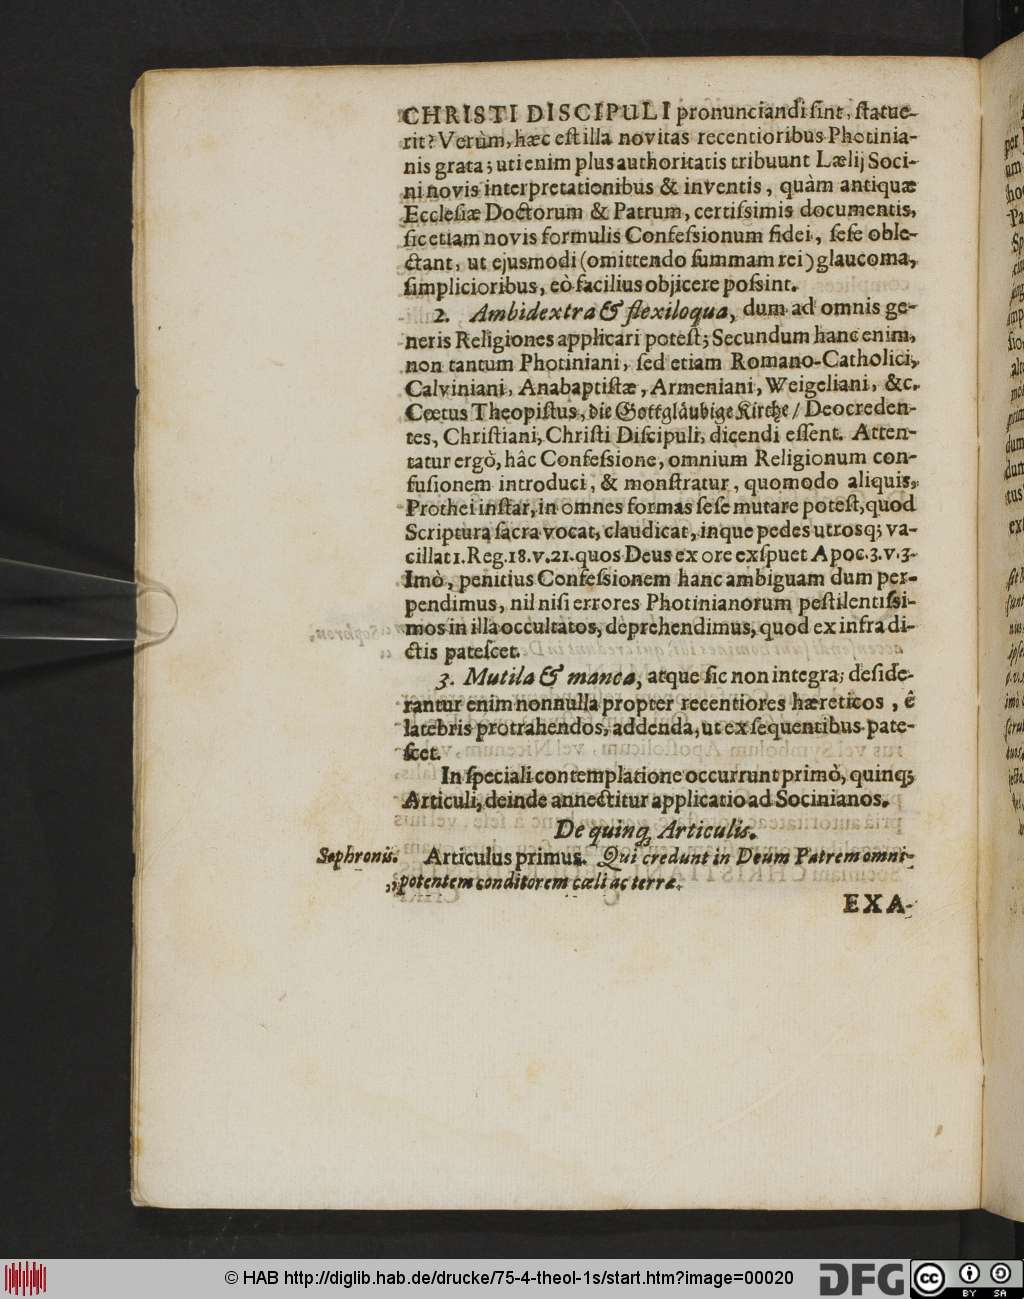 CHRISTI DISCIPULI pronunciandi ſint, ſtatue-
rit? Verùm, hæc eſt illa novitas recentioribus Photinia-
nis grata; uti enim plus authoritatis tribuunt Lælij Soci-
ni novis interpretationibus & inventis, quàm antiquæ
Eccleſiæ Doctorum & Patrum, certiſsimis documentis,
ſic etiam novis formulis Confeſsionum fidei, ſeſe oble-
ctant, ut ejusmodi (omittendo ſummam rei) glaucoma,
ſimplicioribus, eò facilius objicere poſsint.
2. Ambidextra & flexiloqua, dum ad omnis ge-
neris Religiones applicari poteſt; Secundum hanc enim,
non tantum Photiniani, ſed etiam Romano-Catholici,
Calviniani, Anabaptiſtæ, Armeniani, Weigeliani, &c.
Cœtus Theopiſtus, die Gottgläubige Kirche / Deocreden-
tes, Chriſtiani, Chriſti Diſcipuli, dicendi eſſent. Atten-
tatur ergò, hâc Confeſsione, omnium Religionum con-
fuſionem introduci, & monſtratur, quomodo aliquis,
Prothei inſtar, in omnes formas ſeſe mutare poteſt, quod
Scriptura ſacra vocat, claudicat, inque pedes utrosq; va-
cillat 1. Reg. 18. v. 21. quos Deus ex ore exſpuet Apoc. 3. v. 3.
Imò, penitius Confeſsionem hanc ambiguam dum per-
pendimus, nil niſi errores Photinianorum peſtilentiſsi-
mos in illa occultatos, deprehendimus, quod ex infra di-
ctis pateſcet.
3. Mutila & manca, atque ſic non integra; deſide-
rantur enim nonnulla propter recentiores hæreticos, ê
latebris protrahendos, addenda, ut ex ſequentibus pate-
ſcet.
In ſpeciali contemplatione occurrunt primò, quinq;
Articuli, deinde annectitur applicatio ad Socinianos.
De quinq; Articulis.
Sophronis. Articulus primus. Qui credunt in Deum Patrem omni-
„potentem conditorem cœli ac terræ.
EXA-
© HAB http://diglib.hab.de/drucke/75-4-theol-1s/start.htm?image=00020
DFG
cc BY SA